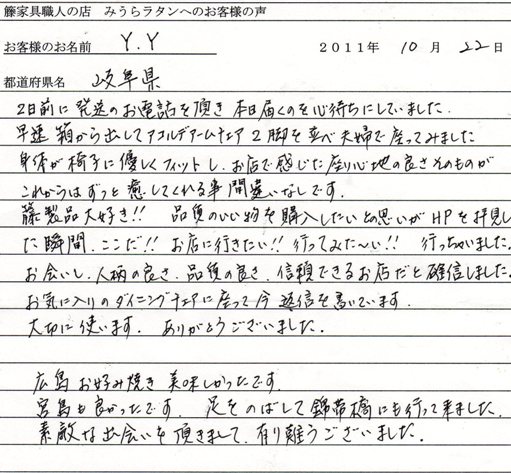 籐家具職人の店　みうらラタンへのお客様の声
お客様のお名前　Y.Y　2011年 10月 22日
都道府県名　岐阜県
2日前に発送のお電話を頂き本日届くのを心待ちにしていました.
早速 箱から出してアコルデアームチェア 2脚を並べ夫婦で座ってみました
身体が椅子に優しくフィットし、お店で感じた座り心地の良さそのものが
これからはずっと癒してくれる事間違いなしです.
籐製品大好き!! 品質のいい物を購入したいとの思いがHPを拝見し
た瞬間、ここだ!! お店に行きたい!! 行ってみた〜い!! 行っちゃいました.
お会いし、人柄の良さ、品質の良さ、信頼できるお店だと確信しました.
お気に入りのダイニングチェアに座って今返信を書いています.
大切に使います. ありがとうございました.
広島お好み焼き美味しかったです.
宮島も良かったです. 足をのばして錦帯橋にも行って来ました.
素敵な出会いを頂きまして、有り難うございました.